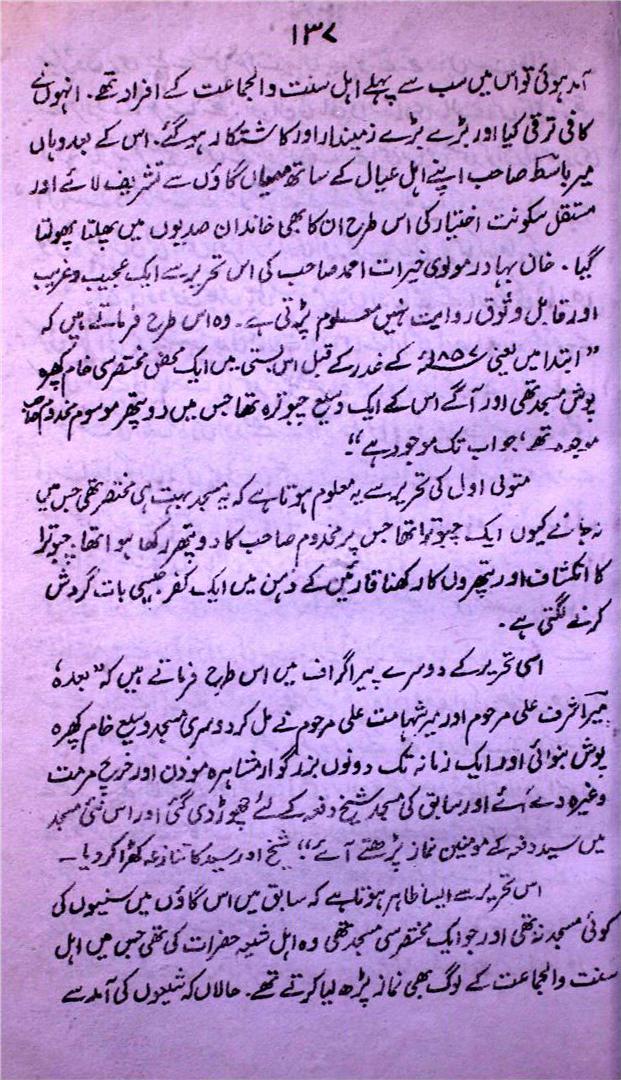 ۱۳۷
آمد ہوئی تو اس میں سب سے پہلے اہل سنت والجماعت کے افراد تھے۔ انہوں نے
کافی ترقی کیا اور بڑے بڑے زمیندار اور کاشتکار ہو گئے۔ اس کے بعد وہاں
میر باسط صاحب اپنے اہل عیال کے ساتھ گاؤں سے تشریف لائے اور
مستقل سکونت اختیار کی اس طرح ان کا بھی خاندان صدیوں میں پھلتا پھولتا
گیا۔ خان بہادر مولوی خیرات احمد صاحب کی اس تحریر سے ایک عجیب و غریب
اور قابل وثوق روایت نہیں معلوم پڑتی ہے۔ وہ اس طرح فرماتے ہیں کہ
"ابتدا میں یعنی ۱۸۵۷ء کے غدر کے قبل اس بستی میں ایک محض مختصر سی خام کھپرہ
پوش مسجد تھی اور آگے اس کے ایک وسیع چبوترہ تھا جس میں دو پتھر موسوم مخدوم صاحب
موجود تھے، جو اب تک موجود ہے"۔
متولی اول کی تحریر سے یہ معلوم ہوتا ہے کہ یہ مسجد بہت ہی مختصر تھی جس میں
نہ جانے کیوں ایک چبوترا تھا جس پر مخدوم صاحب کا دو پتھر رکھا ہوا تھا۔ چبوترا
کا انکشاف اور پتھروں کا رکھنا قارئین کے ذہن میں ایک کفر جیسی بات گردش
کرنے لگتی ہے۔
اسی تحریر کے دوسرے پیراگراف میں اس طرح فرماتے ہیں کہ "بعدہٗ
میر اشرف علی مرحوم اور میر شہامت علی مرحوم نے مل کر دوسری مسجد وسیع خام کھپرہ
پوش بنوائی اور ایک زمانہ تک دونوں بزرگوار مشاہرہ موذن اور خرچ مرمت
وغیرہ دیے گئے اور سابق کی مسجد شیخ دفعہ کے لئے چھوڑ دی گئی اور اس نئی مسجد
میں سید دفعہ کے مومنین نماز پڑھتے آئے"۔ شیخ اور سید کا تنازعہ کھڑا کر دیا۔
اس تحریر سے ایسا ظاہر ہوتا ہے کہ سابق میں اس گاؤں میں سنیوں کی
کوئی مسجد نہ تھی اور جو ایک مختصر سی مسجد تھی وہ اہل شیعہ حضرات کی تھی جس میں اہل
سنت والجماعت کے لوگ بھی نماز پڑھ لیا کرتے تھے۔ حالاں کہ شیعوں کی آمد سے